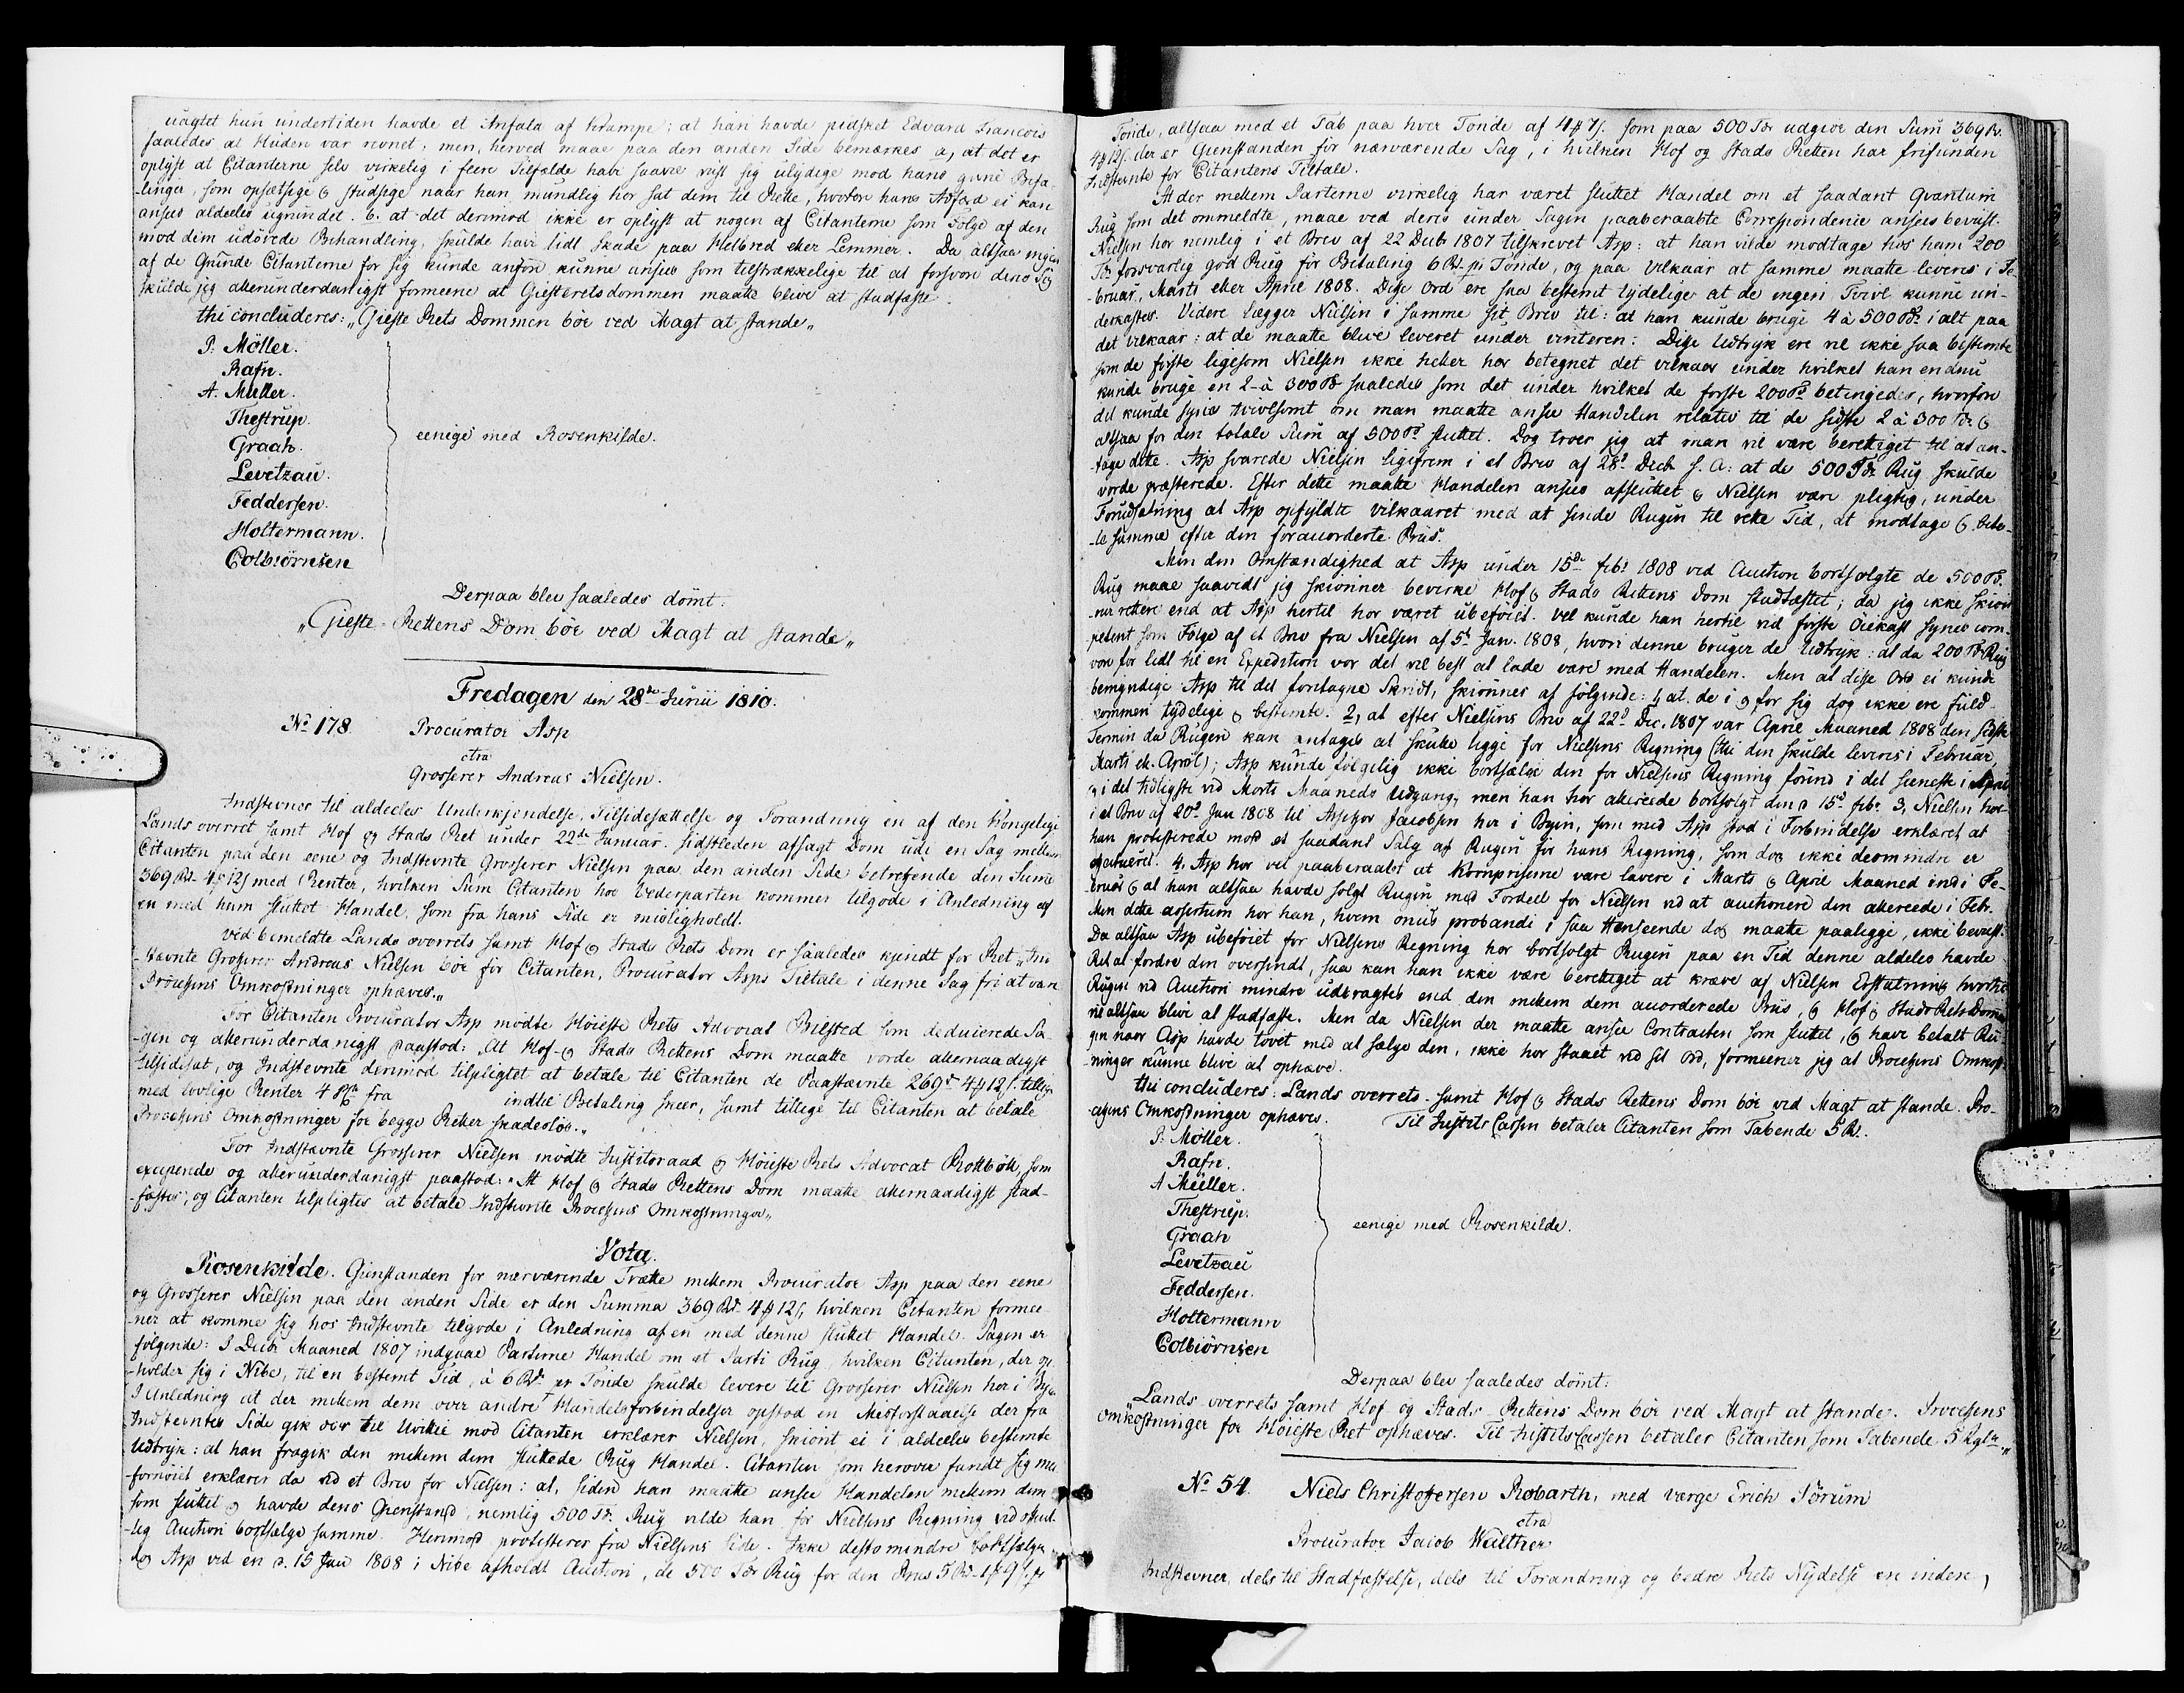 uagtet hun undertiden havde et Anfald af Krampe; at han havde pidsket Edvard Francois
saaledes at Huden var revnet; men, herved maae paa den anden Side bemærkes a, at det er
oplyst at Citanterne selv virkelig i flere Tilfælde have saavel viist sig ulydige mod hans givne Befa-
-linger, som opsætsige og studsige naar han mundtlig har sat dem til Rette, hvorfor hans Adfærd ei kan
ansees aldeeles ugrundet. b. at det derimod ikke er oplyst at nogen af Citanterne som Følge af den
mod dem udøvede Behandling, skulde have lidt Skade paa Helbred eller Lemmer. Da altsaa ingen
af de Grunde Citanterne for sig kunde anføre kunne ansees som tilstrækkelige til at forsvare deres
skulde jeg allerunderdanigst formeene at Giesteretsdommen maatte blive at stadfæste.
thi concluderes: „Gieste Rets Dommen bør ved Magt at stande„
P. Möller.
Rafn.
A. Müller.
Thestrup.
Graah.
eenige med Rosenkilde.
Levetzau.
Feddersen.
Holtermann.
Colbiörnsen
Derpaa blev saaledes dömt:
„Gieste-Rettens Dom bör ved Magt at stande„
Fredagen den 28de Junii 1810.
No 178. Procurator Asp
ctra
Grosserer Andreas Nielsen.
Indstevner til aldeeles Underkjendelse, Tilsidesættelse og Forandring en af den Kongelige
Lands overret samt Hof og Stads Ret under 22de Januar sidstleden afsagt Dom udi en Sag mellem
Citanten paa den eene og Indstevnte Grosserer Nielsen paa den anden Side betreffende den Summa
369 Rd 4 ₰ 12 ſ med Renter, hvilken Sum Citanten hos Vederparten kommer tilgode i Anledning af
en med ham sluttet Handel, som fra hans Side er misligholdt.
Ved bemeldte Lands overrets samt Hof og Stads Rets Dom er saaledes kjendt for Ret „Ind-
-stævnte Grosserer Andreas Nielsen bör for Citanten, Procurator Asps Tiltale i denne Sag fri at være
Processens Omkostninger ophæves.„
For Citanten Procurator Asp mödte Höieste Rets Advocat Bilsted som deducerede Sa-
-gen og allerunderdanigst paastod: „At Hof- og Stads Rettens Dom maatte vorde allernaadigst
tilsidesat, og Indstevnte derimod tilpligtet at betale til Citanten de Paastævnte 269 4 ₰ 12 ſ tillige
med lovlige Renter 4 fra indtil Betaling skeer, samt tillige til Citanten at betale
Processens Omkostninger for begge Retter skadeslös.„
For Indstævnte Grosserer Nielsen mödte Justitsraad og Höieste Rets Advocat Rottböll, som
exciperede og allerunderdanigst paastod: „At Hof og Stads Rettens Dom maatte allernaadigst stad-
-fæstes, og Citanten tilpligtes at betale Indstevnte Processens Omkostninger„
Vota.
Rosenkilde. Gienstanden for nærværende Trætte mellem Procurator Asp paa den eene
og Grosserer Nielsen paa den anden Side er den Summa 369 Rd 4 ₰ 12 ſ, hvilken Citanten formee-
-ner at komme sig hos Indstevnte tilgode i Anledning af en med denne sluttet Handel. Sagen er
fölgende: I Decbr Maaned 1807 indgaae Parterne Handel om et Parti Rug, hvilken Citanten, der op-
-holder sig i Nibe, til en bestemt Tid, à 6 Rd pr Tönde skulde levere til Grosserer Nielsen her i Byen.
I Anledning at der mellem dem over andre Handelsforbindelser opstod en Misforstaaelse der fra
Indstevntes Side gik over til Uvillie mod Citanten erklærer Nielsen, skiönt ei i aldeeles bestemte
Udtryk: at han fragik den mellem dem sluttede Rug Handel. Citanten som herover fandt sig mis-
-fornöiet erklærer da ved et Brev for Nielsen: at, siden han maatte ansee Handelen mellem dem
som sluttet og havde dens Gienstand, nemlig 500 Tdr. Rug vilde han for Nielsens Regning ved offent-
-lig Auction bortsælge samme. Herimod protesterer fra Nielsens Side. Ikke destomindre bortsælger
dog Asp ved en d. 15 Jan 1808 i Nibe afholdt Auction, de 500 Tdr Rug for den Priis 5 Rd 1 ₰ 9 ſ pr
Tönde, altsaa med et Tab paa hver Tönde af 4 ₰ 7 ſ. som paa 500 Tdr udgiör den Sum 369 Rd.
4 ₰ 12 ſ. der er Gienstanden for nærværende Sag, i hvilken Hof og Stads Retten har frifunden
Indstevnte for Citantens Tiltale.
At der mellem Parterne virkelig har været sluttet Handel om et saadant Qvantum
Rug som det ommeldte, maae ved deres under Sagen paaberaabte Correspondence ansees beviist.
Nielsen har nemlig i et Brev af 22 Decb 1807 tilskrevet Asp: at han vilde modtage hos ham 200
Tdr forsvarlig god Rug for Betaling 6 Rd pr Tönde, og paa Vilkaar at samme maatte leveres i Fe-
-bruar, Marts eller April 1808. Disse Ord ere saa bestemt tydelige at de ingen Tvivl kunne un-
derkastes. Videre lægger Nielsen i samme sit Brev til: at han kunde bruge 4 à 500 Tdr i alt paa
det Vilkaar: at de maatte blive leveret under Vinteren: Disse Udtryk ere vel ikke saa bestemte
som de förste ligesom Nielsen ikke heller har betegnet det vilkaar under hvilket han endnu
kunde bruge en 2 à 300 Tdr saaledes som det under hvilket de förste 200 Tdr betingedes, hvorfore
det kunde synes tvivlsomt om man maatte ansee Handelen relativ til de sidste 2 à 300 Tdr og
altsaa for den totale Sum af 500 Tdr sluttet. Dog troer jeg at man vil være berettiget til at an-
-tage dette. Asp svarede Nielsen ligefrem i et Brev af 28d Decb s. A: at de 500 Tdr Rug skulde
vorde præsterede. Efter dette maatte Handelen ansees afsluttet og Nielsen være pligtig, under
Forudsætning at Asp opfyldte vilkaaret med at sende Rugen til rette Tid, at modtage og beta-
-le samme efter den foraccorderte Priis.
Men den Omstændighed at Asp under 15de febr 1808 ved Auction bortsolgte de 500 Tdr.
Rug maae saavidt jeg skiönner bevirke Hof og Stads Rettens Dom stadfæstet; da jeg ikke skiön-
ner rettere end at Asp hertil har været ubeföiet. Vel kunde han hertil ved förste Öiekast synes com-
petent som Fölge af et Brev fra Nielsen af 5t Jan. 1808, hvori denne bruger de Udtryk: at da 200 Tdr Rug
var for lidt til en Expedition var det vel best at lade være med Handelen. Men at disse Ord ei kunde
bemyndige Asp til det foretagne Skridt, skiönnes af fölgende: 1, at de i og for sig dog ikke ere fuld-
kommen tydelige og bestemte. 2, at efter Nielsens Brev af 22d Dec. 1807 var April Maaned 1808 den sidste
Termin da Rugen kan antages at skulle ligge for Nielsens Regning (thi den skulde leveres i Februar,
Marts el. April); Asp kunde fölgelig ikke bortsælge den for Nielsens Regning förend i det seeneste i April
og i det tidligste ved Marts Maaneds Udgang, men han har allereede bortsolgt den d 15d febr. 3, Nielsen har
i et Brev af 20d Jan 1808 til Assessor Jacobsen her i Byen, som med Asp stod i Forbindelse erklæret at
han protesterede mod et saadant Salg af Rugen for hans Regning, som dog ikke desomindre er
4. Asp har vel paaberaabt at Kornpriserne vare lavere i Marts og April Maaned end i Fe-
bruar og at han altsaa havde solgt Rugen med Fordeel for Nielsen ved at auctionere den allereede i Febr.
Men dette assertum har han, hvem onus probandi i saa Henseende dog maatte paaligge, ikke beviist.
Da altsaa Asp ubeföiet for Nielsens Regning har bortsolgt Rugen paa en Tid denne aldeles havde
Ret at fordre den oversendt, saa kan han ikke være berettiget at kræve af Nielsen Erstatning hvortil
Rugen ved Auction mindre udbragtes end den mellem dem accorderede Priis, og Hof og Stads Rets Dommen
vil altsaa blive at stadfæste. Men da Nielsen der maatte ansee Contracten som sluttet, og have betalt Ru-
gen naar Asp havde tövet med at sælge den, ikke har staaet ved sit Ord, formeener jeg at Processens Omkost-
ninger kunne blive at ophæve.
thi concluderes: Lands overrets- samt Hof og Stads Rettens Dom bör ved Magt at stande. Pro-
cessens Omkostninger ophæves. Til Justits Cassen betaler Citanten som Tabende 5 Rd.
P. Möller.
Rafn.
A Müller.
Thestrup.
eenige med Rosenkilde.
Graah
Levetzau
Feddersen.
Holtermann
Colbiörnsen
Derpaa blev saaledes dömt:
„Lands overrets samt Hof og Stads-Rettens Dom bör ved Magt at stande. Processens
Omkostninger for Höieste Ret ophæves. Til Justits Cassen betaler Citanten som Tabende 5 Rdlr„
No 54. Niels Christofersen Robarth, med værge Erich Sörum
ctra
Procurator Jacob Walther
Indstevner, dels til Stadfæstelse, dels til Forandring og bedre Rets Nydelse en inden